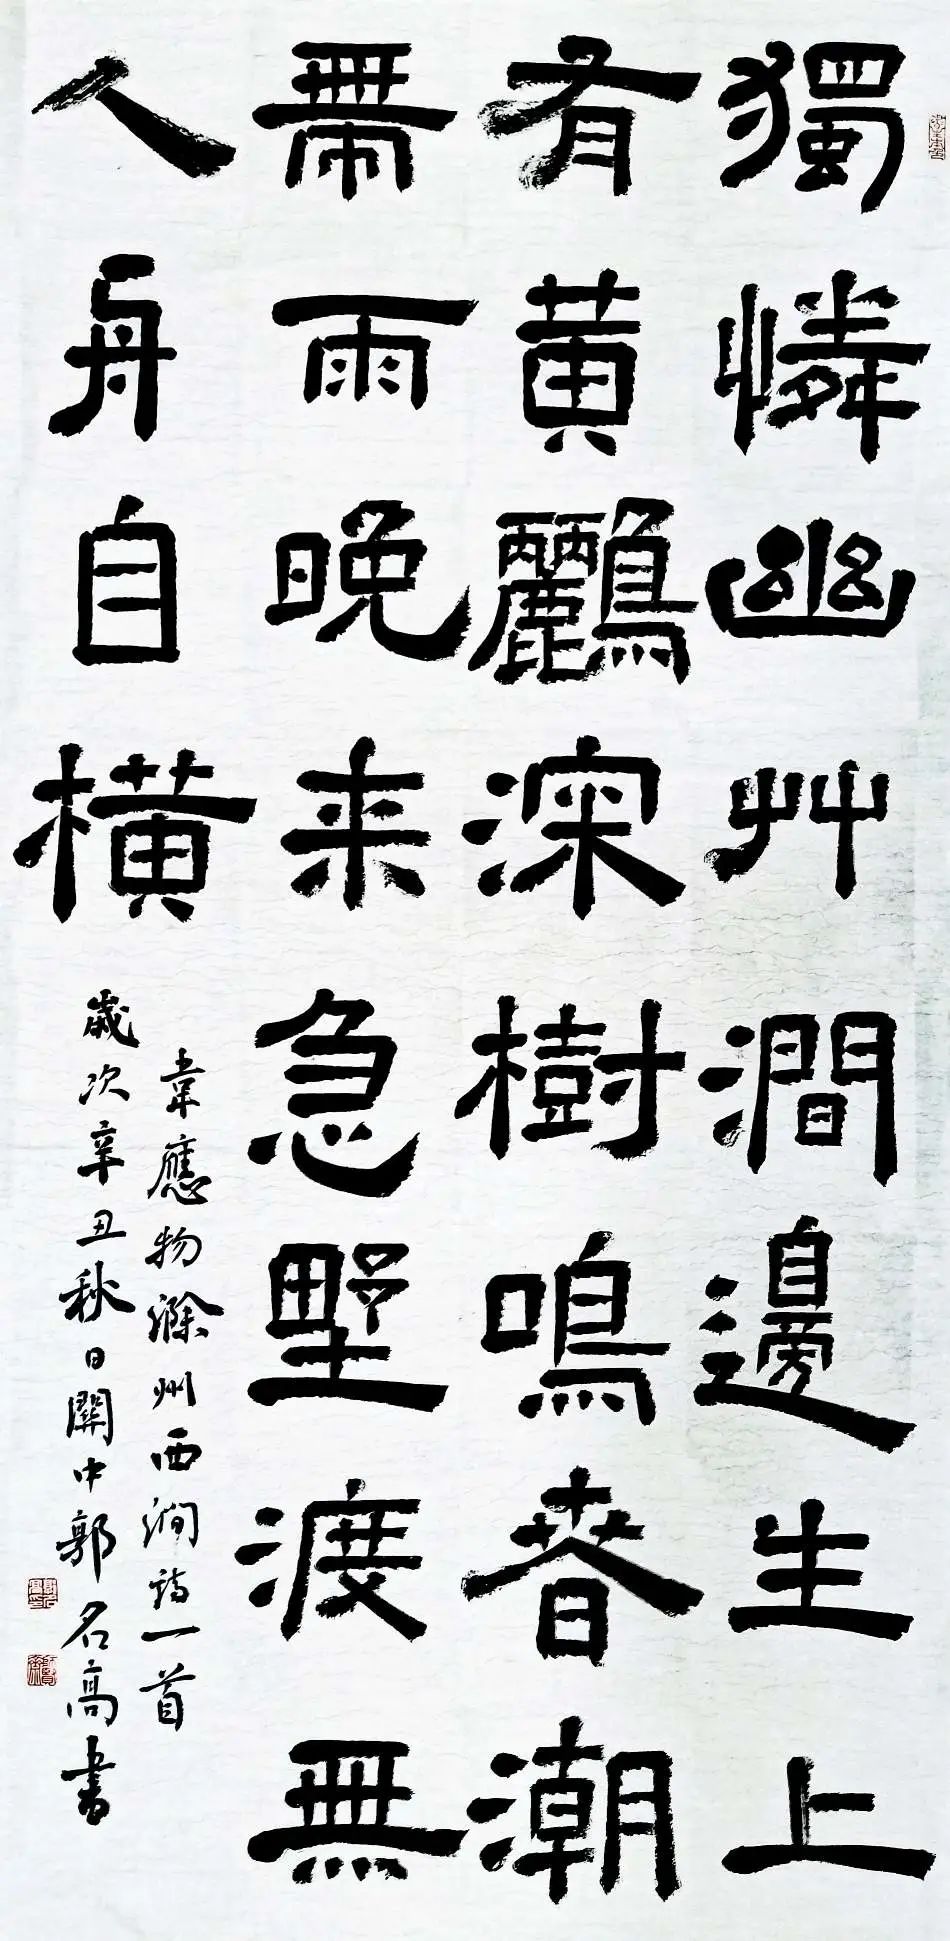 獨憐幽艸澗邊生上
有黃鸝深樹鳴春潮
帶雨晚来急野渡無
人舟自橫
韋應物滁州西澗詩一首
歲次辛丑秋日關中郭名高書